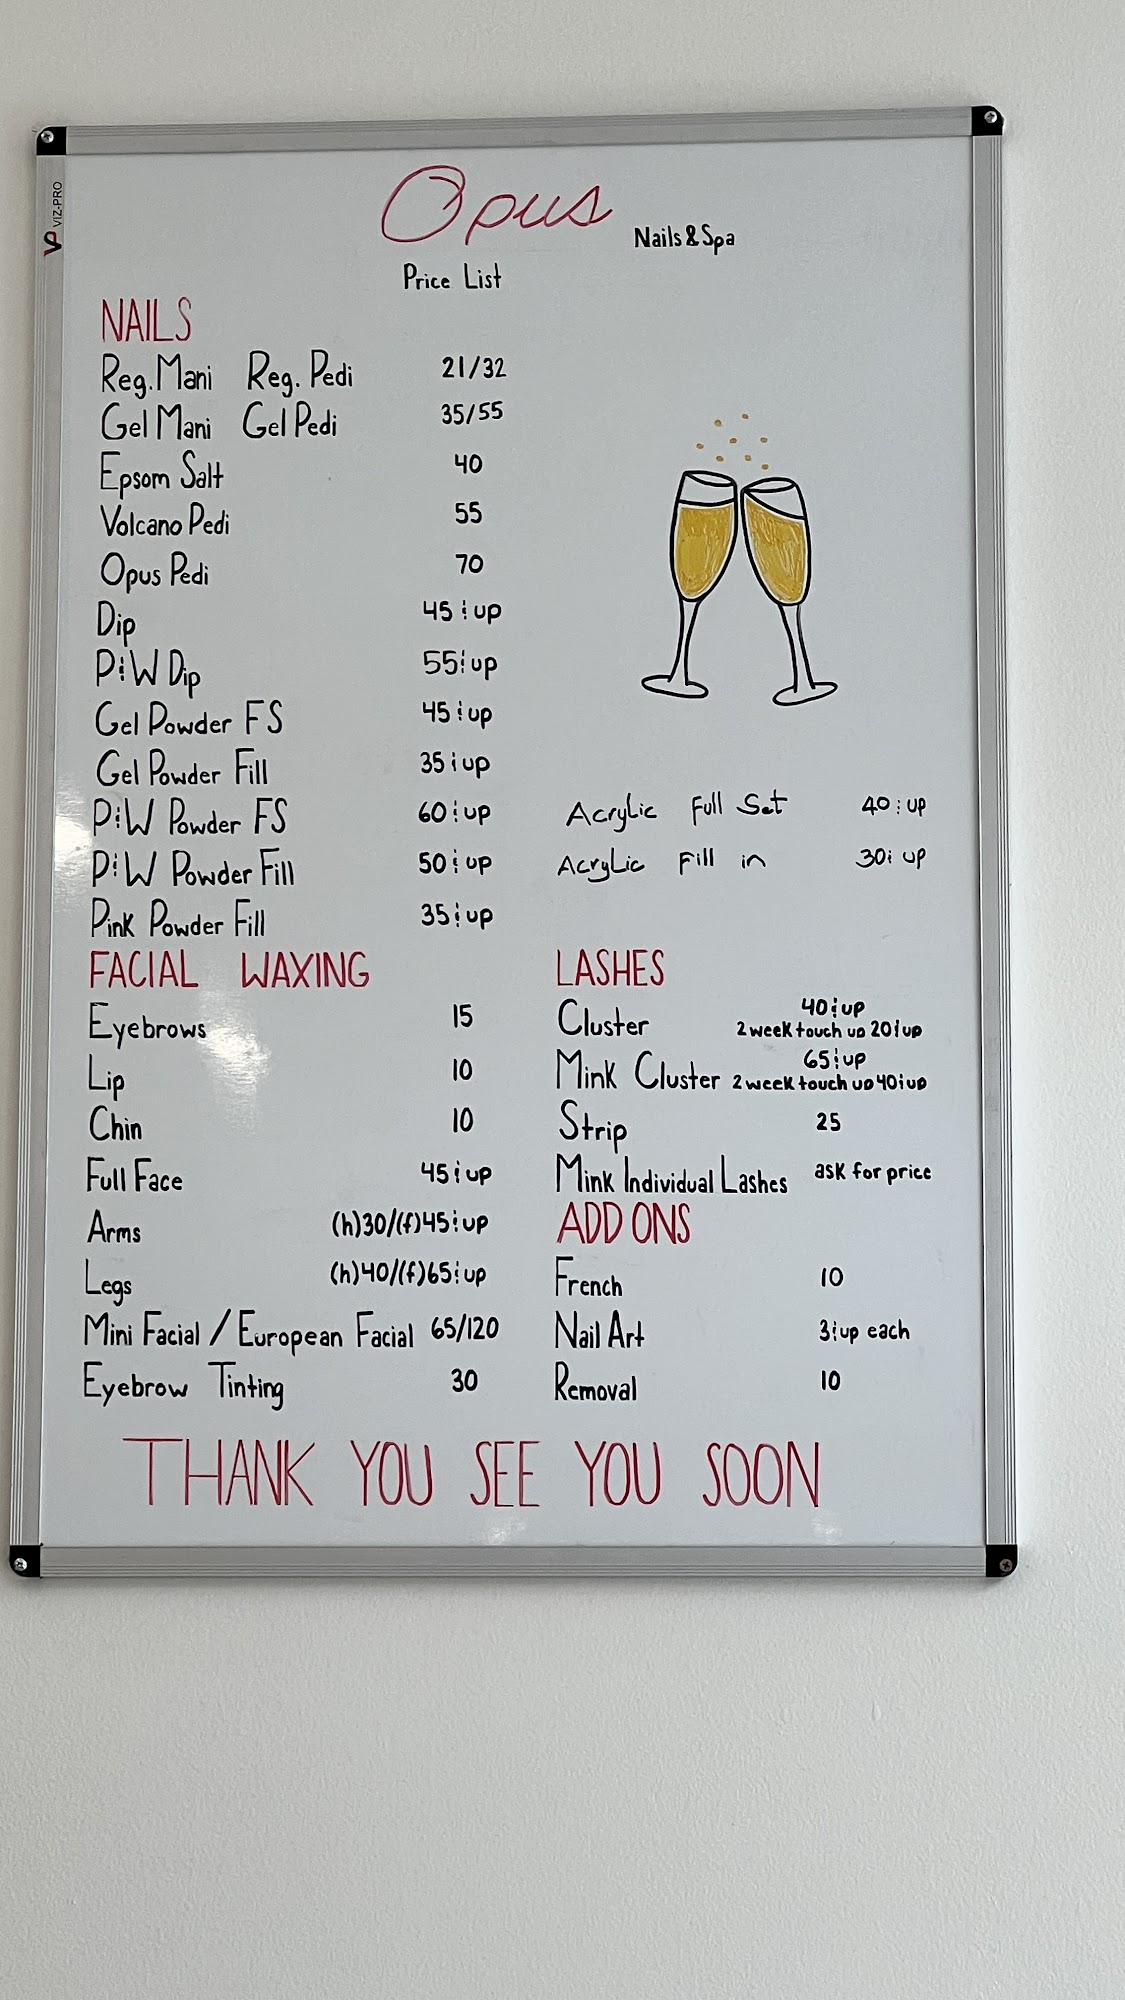 VP VIZ-PRO
Opus
Nails & Spa
Price List
NAILS
Reg. Mani Reg. Pedi 21/32
Gel Mani Gel Pedi 35/55
Epsom Salt 40
Volcano Pedi 55
Opus Pedi 70
Dip 45 & up
P&W Dip 55 & up
Gel Powder FS 45 & up
Gel Powder Fill 35 & up
P&W Powder FS 60 & up
P&W Powder Fill 50 & up
Pink Powder Fill 35 & up
Acrylic Full Set 40 & up
Acrylic Fill in 30 & up
FACIAL WAXING
Eyebrows 15
Lip 10
Chin 10
Full Face 45 & up
Arms (h)30/(f)45 & up
Legs (h)40/(f)65 & up
Mini Facial / European Facial 65/120
Eyebrow Tinting 30
LASHES
Cluster 40 & up
2 week touch up 20 & up
Mink Cluster 65 & up
2 week touch up 40 & up
Strip 25
Mink Individual Lashes ask for price
ADD ONS
French 10
Nail Art 3 & up each
Removal 10
THANK YOU SEE YOU SOON